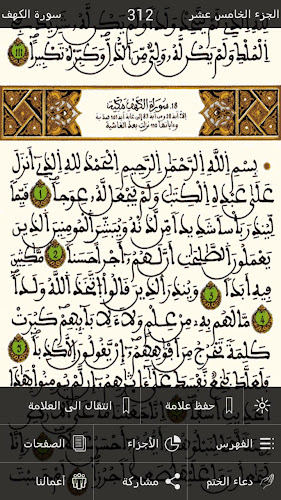 الجزء الخامس عشر 312 سورة الكهف
الملك ولم يكن له ولي من الذل وكبره تكبيرا 111
18. سورة الكهف مكية
إلا آية 28 ومن آية 83 إلى غاية آية 101 فمدنية
وآياتها 110 نزلت بعد الغاشية
بسم الله الرحمن الرحيم الحمد لله الذي أنزل
على عبده الكتب ولم يجعل له عوجا 1 قيما
لينذر بأسا شديدا من لدنه ويبشر المومنين الذين
يعملون الصلحت أن لهم أجرا حسنا 2 مكثين
فيه أبدا 3 وينذر الذين قالوا اتخذ الله ولدا
4 ما لهم به من علم ولا لءابائهم كبرت
كلمة تخرج من أفواههم إن يقولون إلا كذبا
5 لم يومنوا بهذا
حفظ علامة انتقال الى العلامة
الفهرس الأجزاء الصفحات
دعاء الختم مشاركة أعمالنا